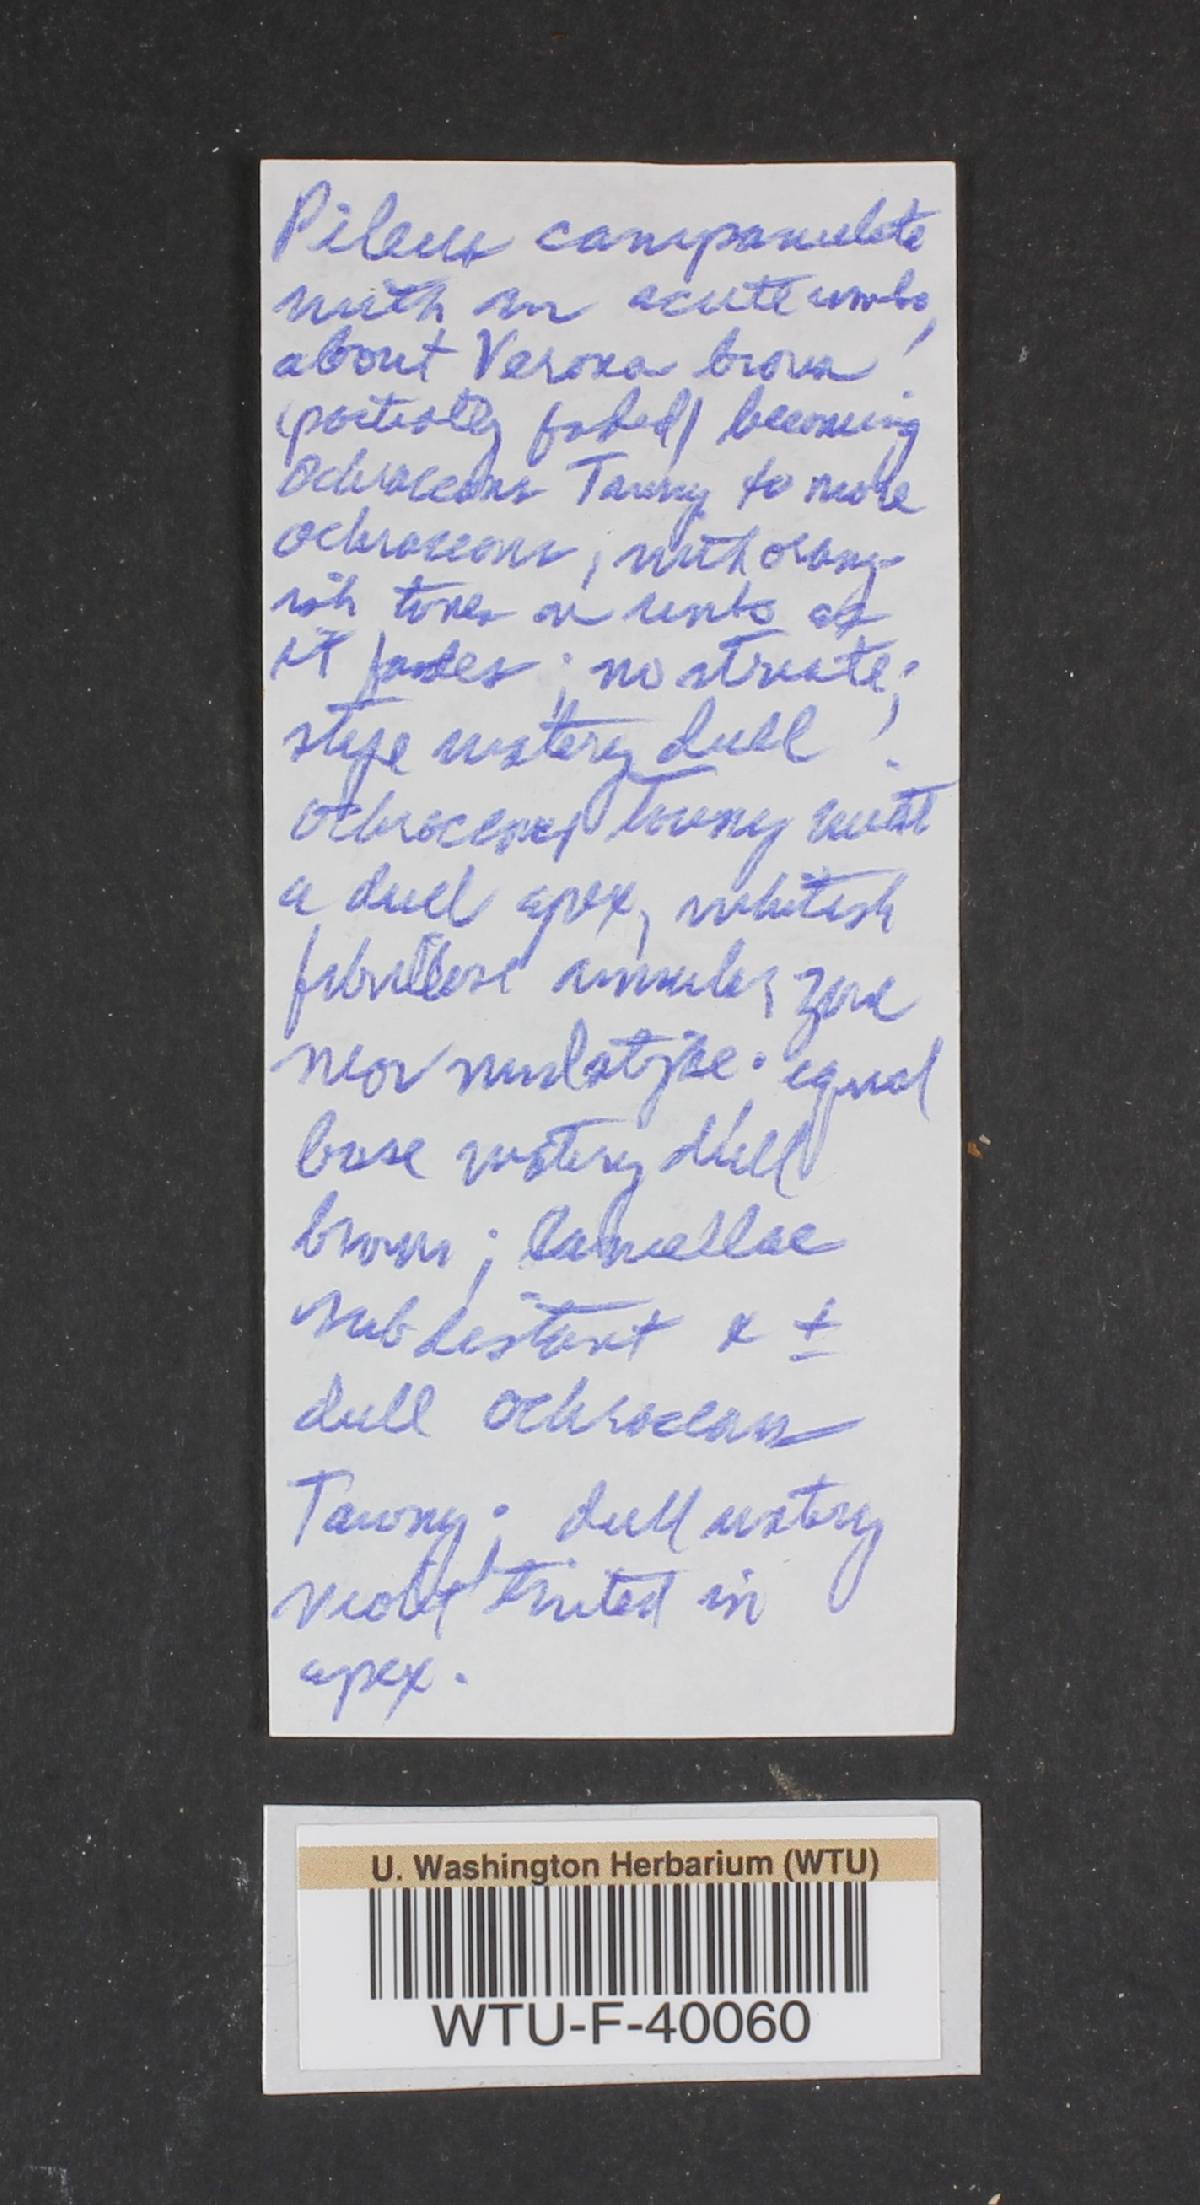 Pileus campanulate
with an acute umbo,
about Verona brown
(partially faded) becoming
Ochraceous Tawny to more
ochraceous, with orang-
ish tones on umbo as
it fades; no striate;
stipe watery dull
ochraceous Tawny with
a dull apex, whitish
fibrillose annular zone
near midstipe. equal
base watery dull
brown; lamellae
subdistant & ±
dull Ochraceous
Tawny; dull watery
violet tinted in
apex.
U. Washington Herbarium (WTU)
WTU-F-40060